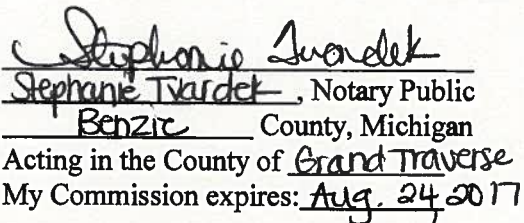 Stephanie Tvardek
Stephanie Tvardek, Notary Public
Benzie County, Michigan
Acting in the County of Grand Traverse
My Commission expires: Aug. 24 2017